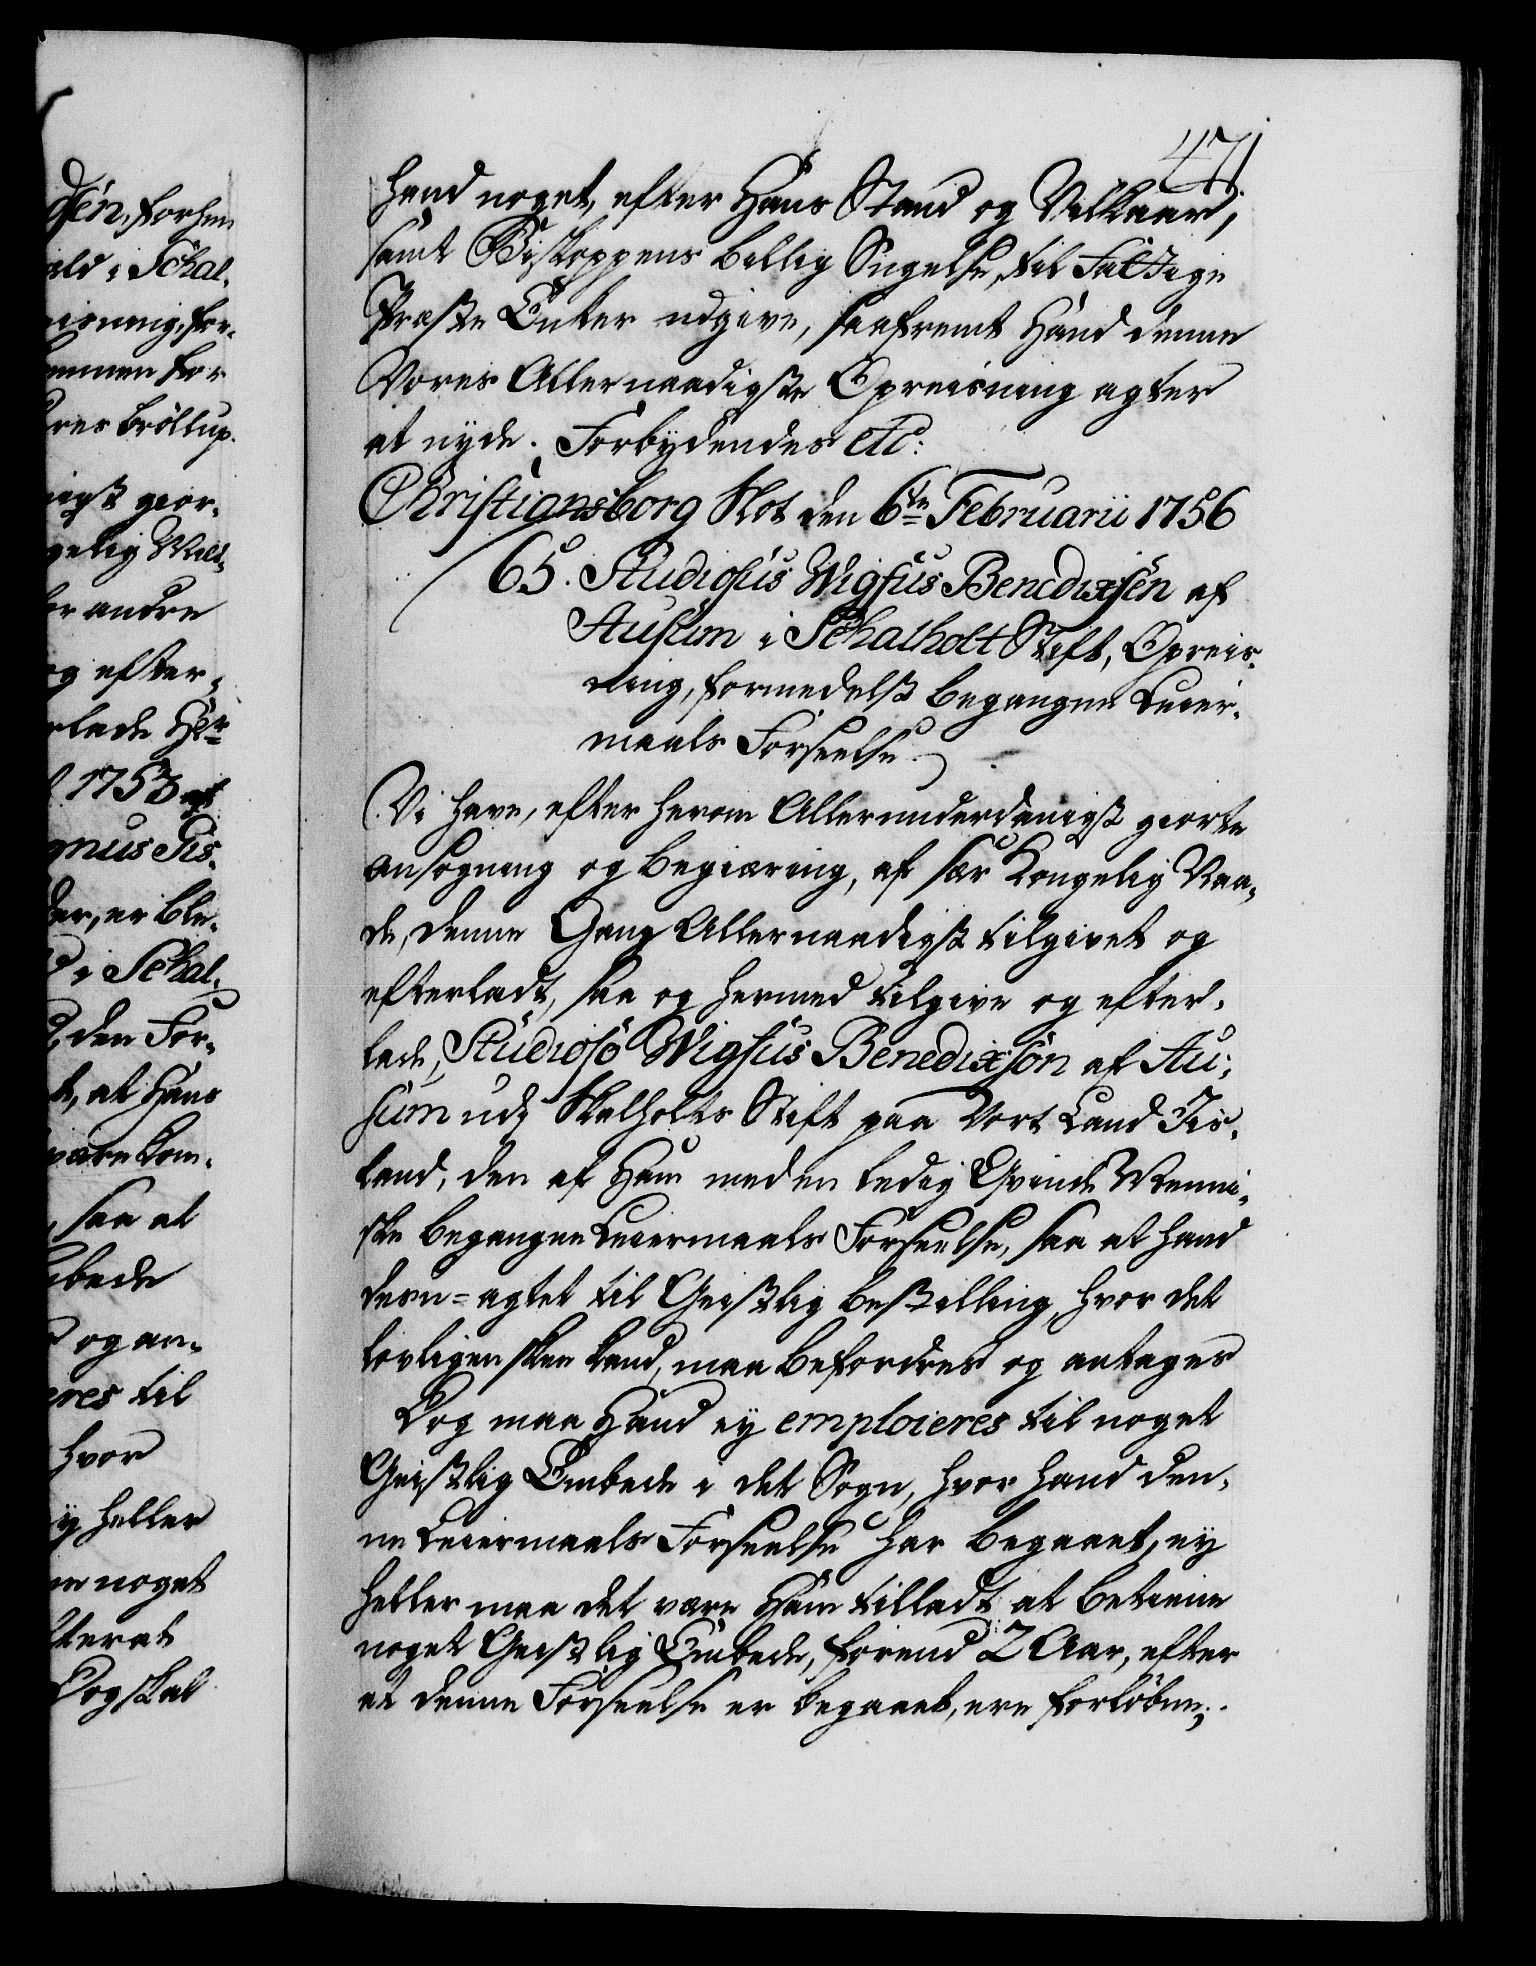 471.
Hand noget, efter Hans Stand og Vilkaar,
samt Biskoppens billig Sigelse, til Fattige
Præste Enker udgive, saafremt Hand denne
Vores Allernaadigste Opreisning agter
at nyde. Forbydendes etc:
Christiansborg Slot den 6te Februarii 1756
65. Studiosus Wigfus Benedixsen af
Ausum i Schalholt Stift, Opreis-
ning, formedelst begangne Leier-
maals Forseelse.
Vi have, efter herom Allerunderdanigst giorte
Ansøgning og Begiæring, af sær Kongelig Naa-
de, denne Gang Allernaadigst tilgivet og
efterladt, saa og hermed tilgive og efter-
lade, Studioso Wigfus Benedixsøn af Au-
sum udj Skalholts Stift paa Vort Land Iis-
land, den af Ham med en ledig Qvinde Menni-
ske begangne Leiermaals Forseelse, saa at Hand
desu=agtet til Geistlig Bestilling, hvor det
lovligen skee kand, maa befordres og antages
Dog maa Hand ey emploieres til noget
Geistlig Embede i det Sogn, hvor Hand den-
ne Leiermaals Forseelse har begaaet, ey
heller maa det være Ham tilladt at betiene
noget Geistlig Embede, førend 2 Aar, efter
at denne Forseelse er begaaet, ere forløbne;